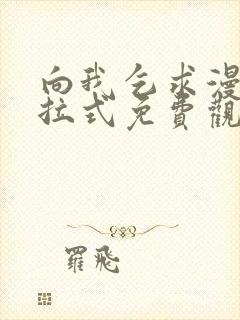 向我乞求漫
拉式免費觀
羅飛